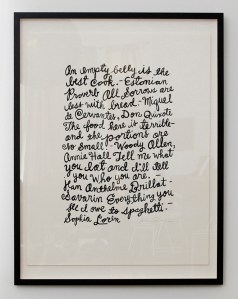 An empty belly is the
best cook.- Estonian
Proverb All sorrows are
less with bread.- Miguel
de Cervantes, Don Quixote
The food here is terrible-
and the portions are
so small.- Woody Allen,
Annie Hall Tell me what
you eat and I'll tell
you who you are.-
Jean Anthelme Brillat-
Savarin Everything you
see I owe to spaghetti.-
Sophia Loren